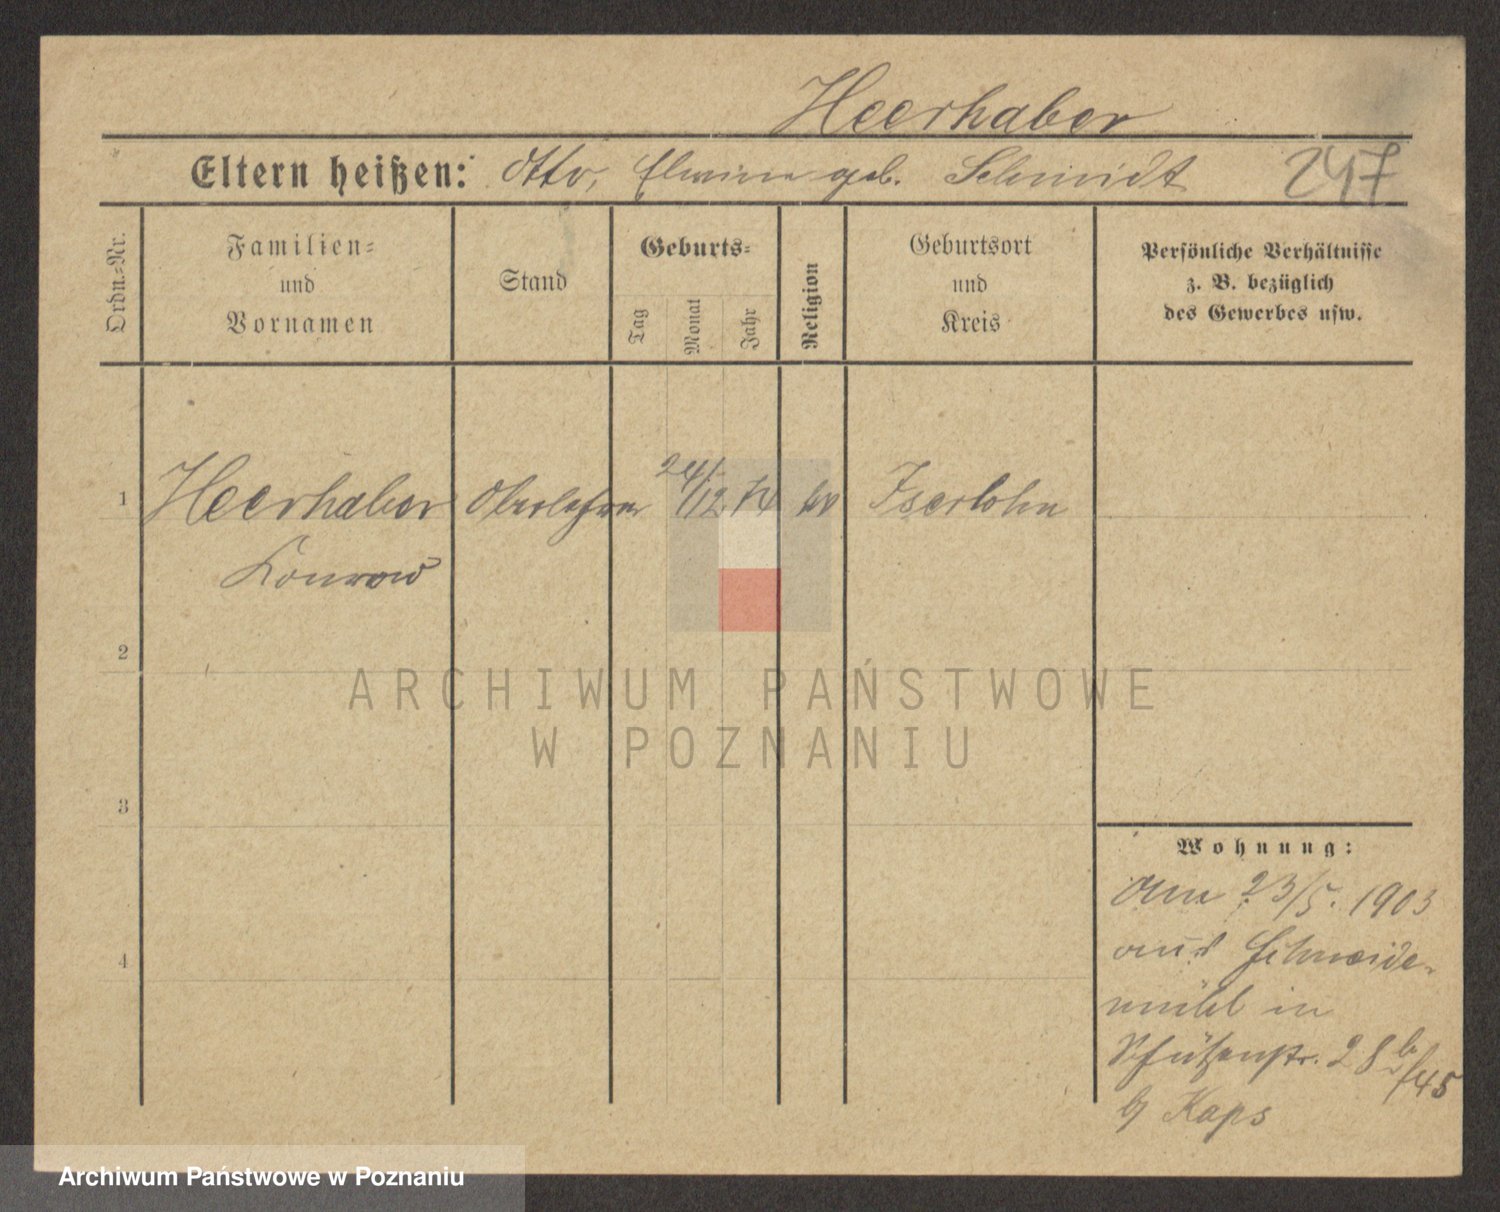 Heerhaber
Eltern heißen: Otto, Elwine geb. Schmidt 247
Ordn.-Nr.
Familien-
und
Vornamen
Stand
Geburts-
Tag
Monat
Jahr
Religion
Geburtsort
und
Kreis
Persönliche Verhältnisse
z. B. bezüglich
des Gewerbes usw.
1 Heerhaber Oberlehrer 24/12 74 ev Iserlohn
Konrad
2
ARCHIWUM PAŃSTWOWE
W POZNANIU
3
Wohnung:
Am 23/5. 1903
aus Schneide-
mühl in
4
Schützenstr. 28b/45
b/ Kaps
Archiwum Państwowe w Poznaniu